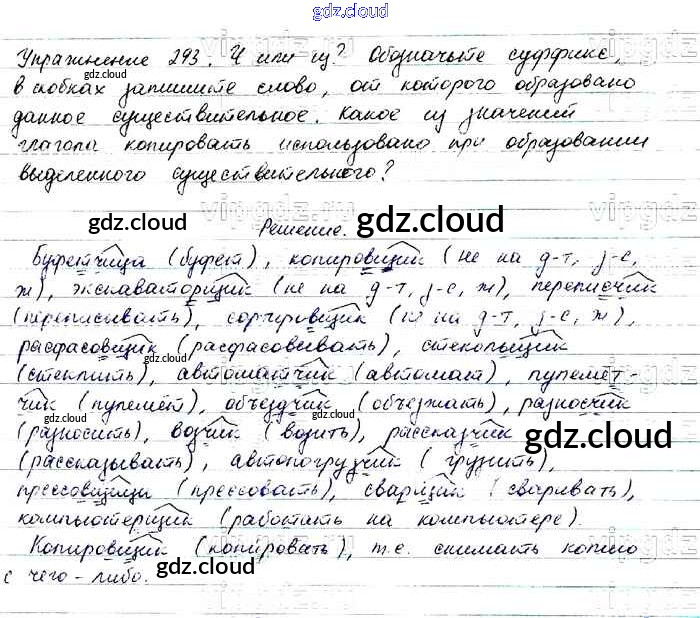 gdz.cloud
Упражнение 293. Ч или щ? Обозначьте суффикс,
в скобках запишите слово, от которого образовано
данное существительное. Какое из значений
глагола копировать использовано при образовании
выделенного существительного?
gdz.cloud
Решение.
Буфетчица (буфет), копировщик (не на д-т, з-с,
ж), экскаваторщик (не на д-т, з-с, ж), переписчик
(переписывать), сортировщик (не на д-т, з-с, ж),
расфасовщик (расфасовывать), стекольщик
(стеклить), автоматчик (автомат), пулемёт-
чик (пулемёт), объездчик (объезжать), разносчик
(разносить), возчик (возить), рассказчик
(рассказывать), автопогрузчик (грузить),
прессовщики (прессовать), сварщик (сваривать),
компьютерщик (работать на компьютере).
Копировщик (копировать), т.е. снимать копию
с чего-либо.
gdz.cloud
gdz.cloud
gdz.cloud
gdz.cloud
gdz.cloud
gdz.cloud
gdz.cloud
gdz.cloud
gdz.cloud
vipgdz
vipgdz
vipgdz